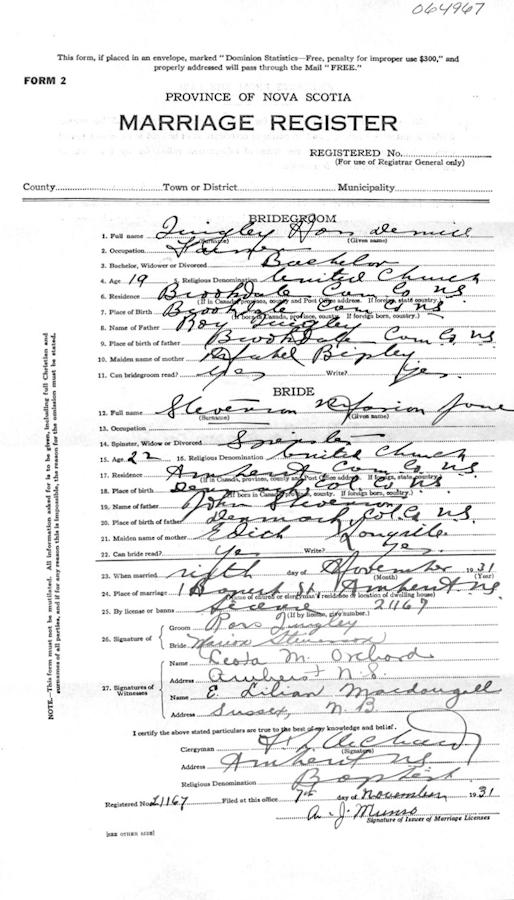 064967
This form, if placed in an envelope, marked "Dominion Statistics—Free, penalty for improper use $300," and
properly addressed will pass through the Mail "FREE."
FORM 2
PROVINCE OF NOVA SCOTIA
MARRIAGE REGISTER
REGISTERED No.
(For use of Registrar General only)
County Town or District Municipality
BRIDEGROOM
1. Full name Tingley
(Surname) (Given name)
2. Occupation
3. Bachelor, Widower or Divorced Bachelor
4. Age 19 5. Religious Denomination United Church
6. Residence Brookdale Cum Co N.S.
(If in Canada, province, county and Post Office address. If foreign, state country.)
7. Place of Birth Brookdale Cum Co N.S.
(If born in Canada, province, county. If foreign born, country.)
8. Name of Father Roy Tingley
9. Place of birth of father Brookdale Cum Co N.S.
10. Maiden name of mother Ripley
11. Can bridegroom read? Yes Write? Yes
BRIDE
12. Full name Stevenson Marion Jane
(Surname) (Given name)
13. Occupation
14. Spinster, Widow or Divorced Spinster
15. Age 22 16. Religious Denomination United Church
17. Residence Amherst Cum Co N.S.
(If in Canada, province, county and Post Office address. If foreign, state country.)
18. Place of birth Denmark Col. Co N.S.
(If born in Canada, province, county. If foreign born, country.)
19. Name of father John Stevenson
20. Place of birth of father Denmark Col. Co N.S.
21. Maiden name of mother Edith
22. Can bride read? Yes Write? Yes.
23. When married fifth day of November 1931
(Month) (Year)
24. Place of marriage St Amherst N.S.
(Name of church or clergyman's residence or location of dwelling house)
25. By license or banns License 21167
(If by license, give number.)
26. Signature of
Groom Ross Tingley
Bride Marion Stevenson
27. Signatures of Witnesses
Name Leota M. Orchard
Address Amherst N.S.
Name E. Lilian Macdougall
Address Sussex, N.B.
I certify the above stated particulars are true to the best of my knowledge and belief.
Clergyman
(Signature)
Address Amherst N.S.
Religious Denomination Baptist
Registered No. 21167 Filed at this office 7th day of November 1931
A. J. Munro
Signature of Issuer of Marriage Licenses
[SEE OTHER SIDE]
NOTE.—This form must not be mutilated. All information asked for is to be given, including full Christian and
surnames of all parties, and if for any reason this is impossible, the reason for the omission must be stated.